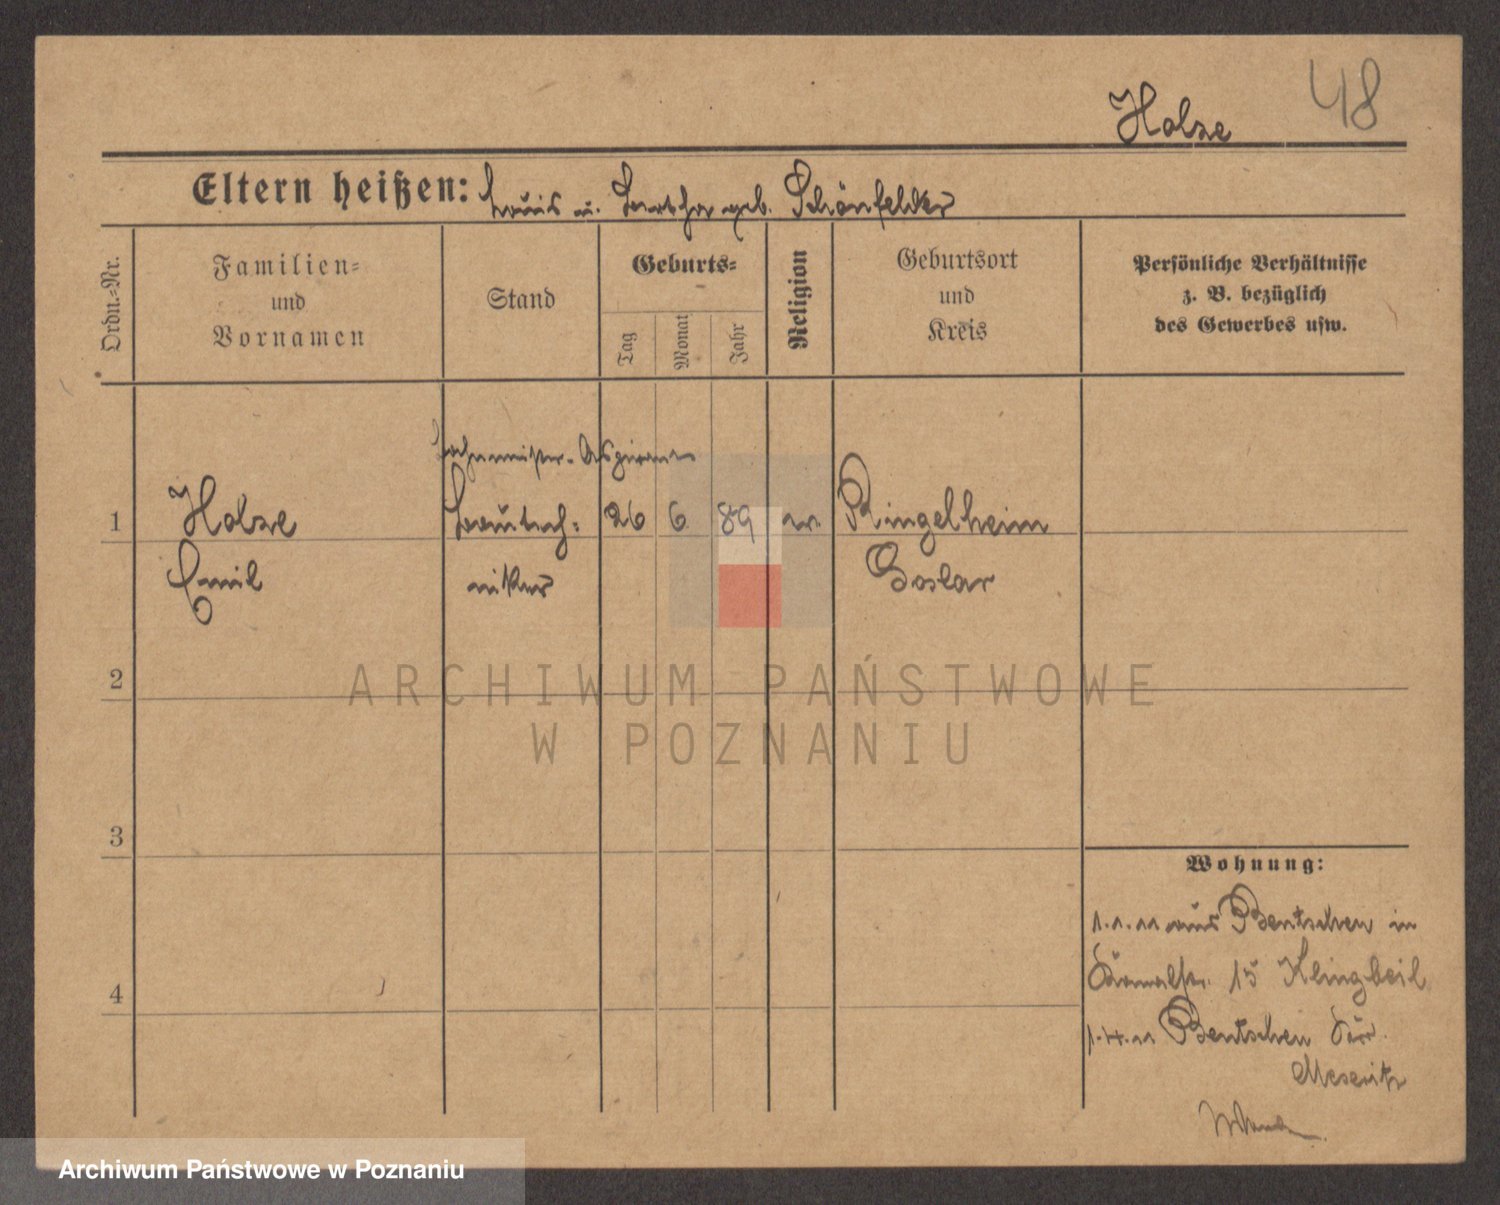 48
Holze
Eltern heißen: Louis u. Bertha geb. Schönfelder
Ordn.=Nr.
Familien=
und
Vornamen
Stand
Geburts=
Tag
Monat
Jahr
Religion
Geburtsort
und
Kreis
Persönliche Verhältnisse
z. B. bezüglich
des Gewerbes usw.
Bahnmeister-Aspirant
1 Holze Bautech= 26 6 89 ev. Ringelheim
Emil niker Goslar
2
ARCHIWUM PAŃSTWOWE
W POZNANIU
3
4
Wohnung:
1.1.11 aus Bentschen in
15 Klingbeil
1.4.11 Bentschen
Meseritz
Archiwum Państwowe w Poznaniu